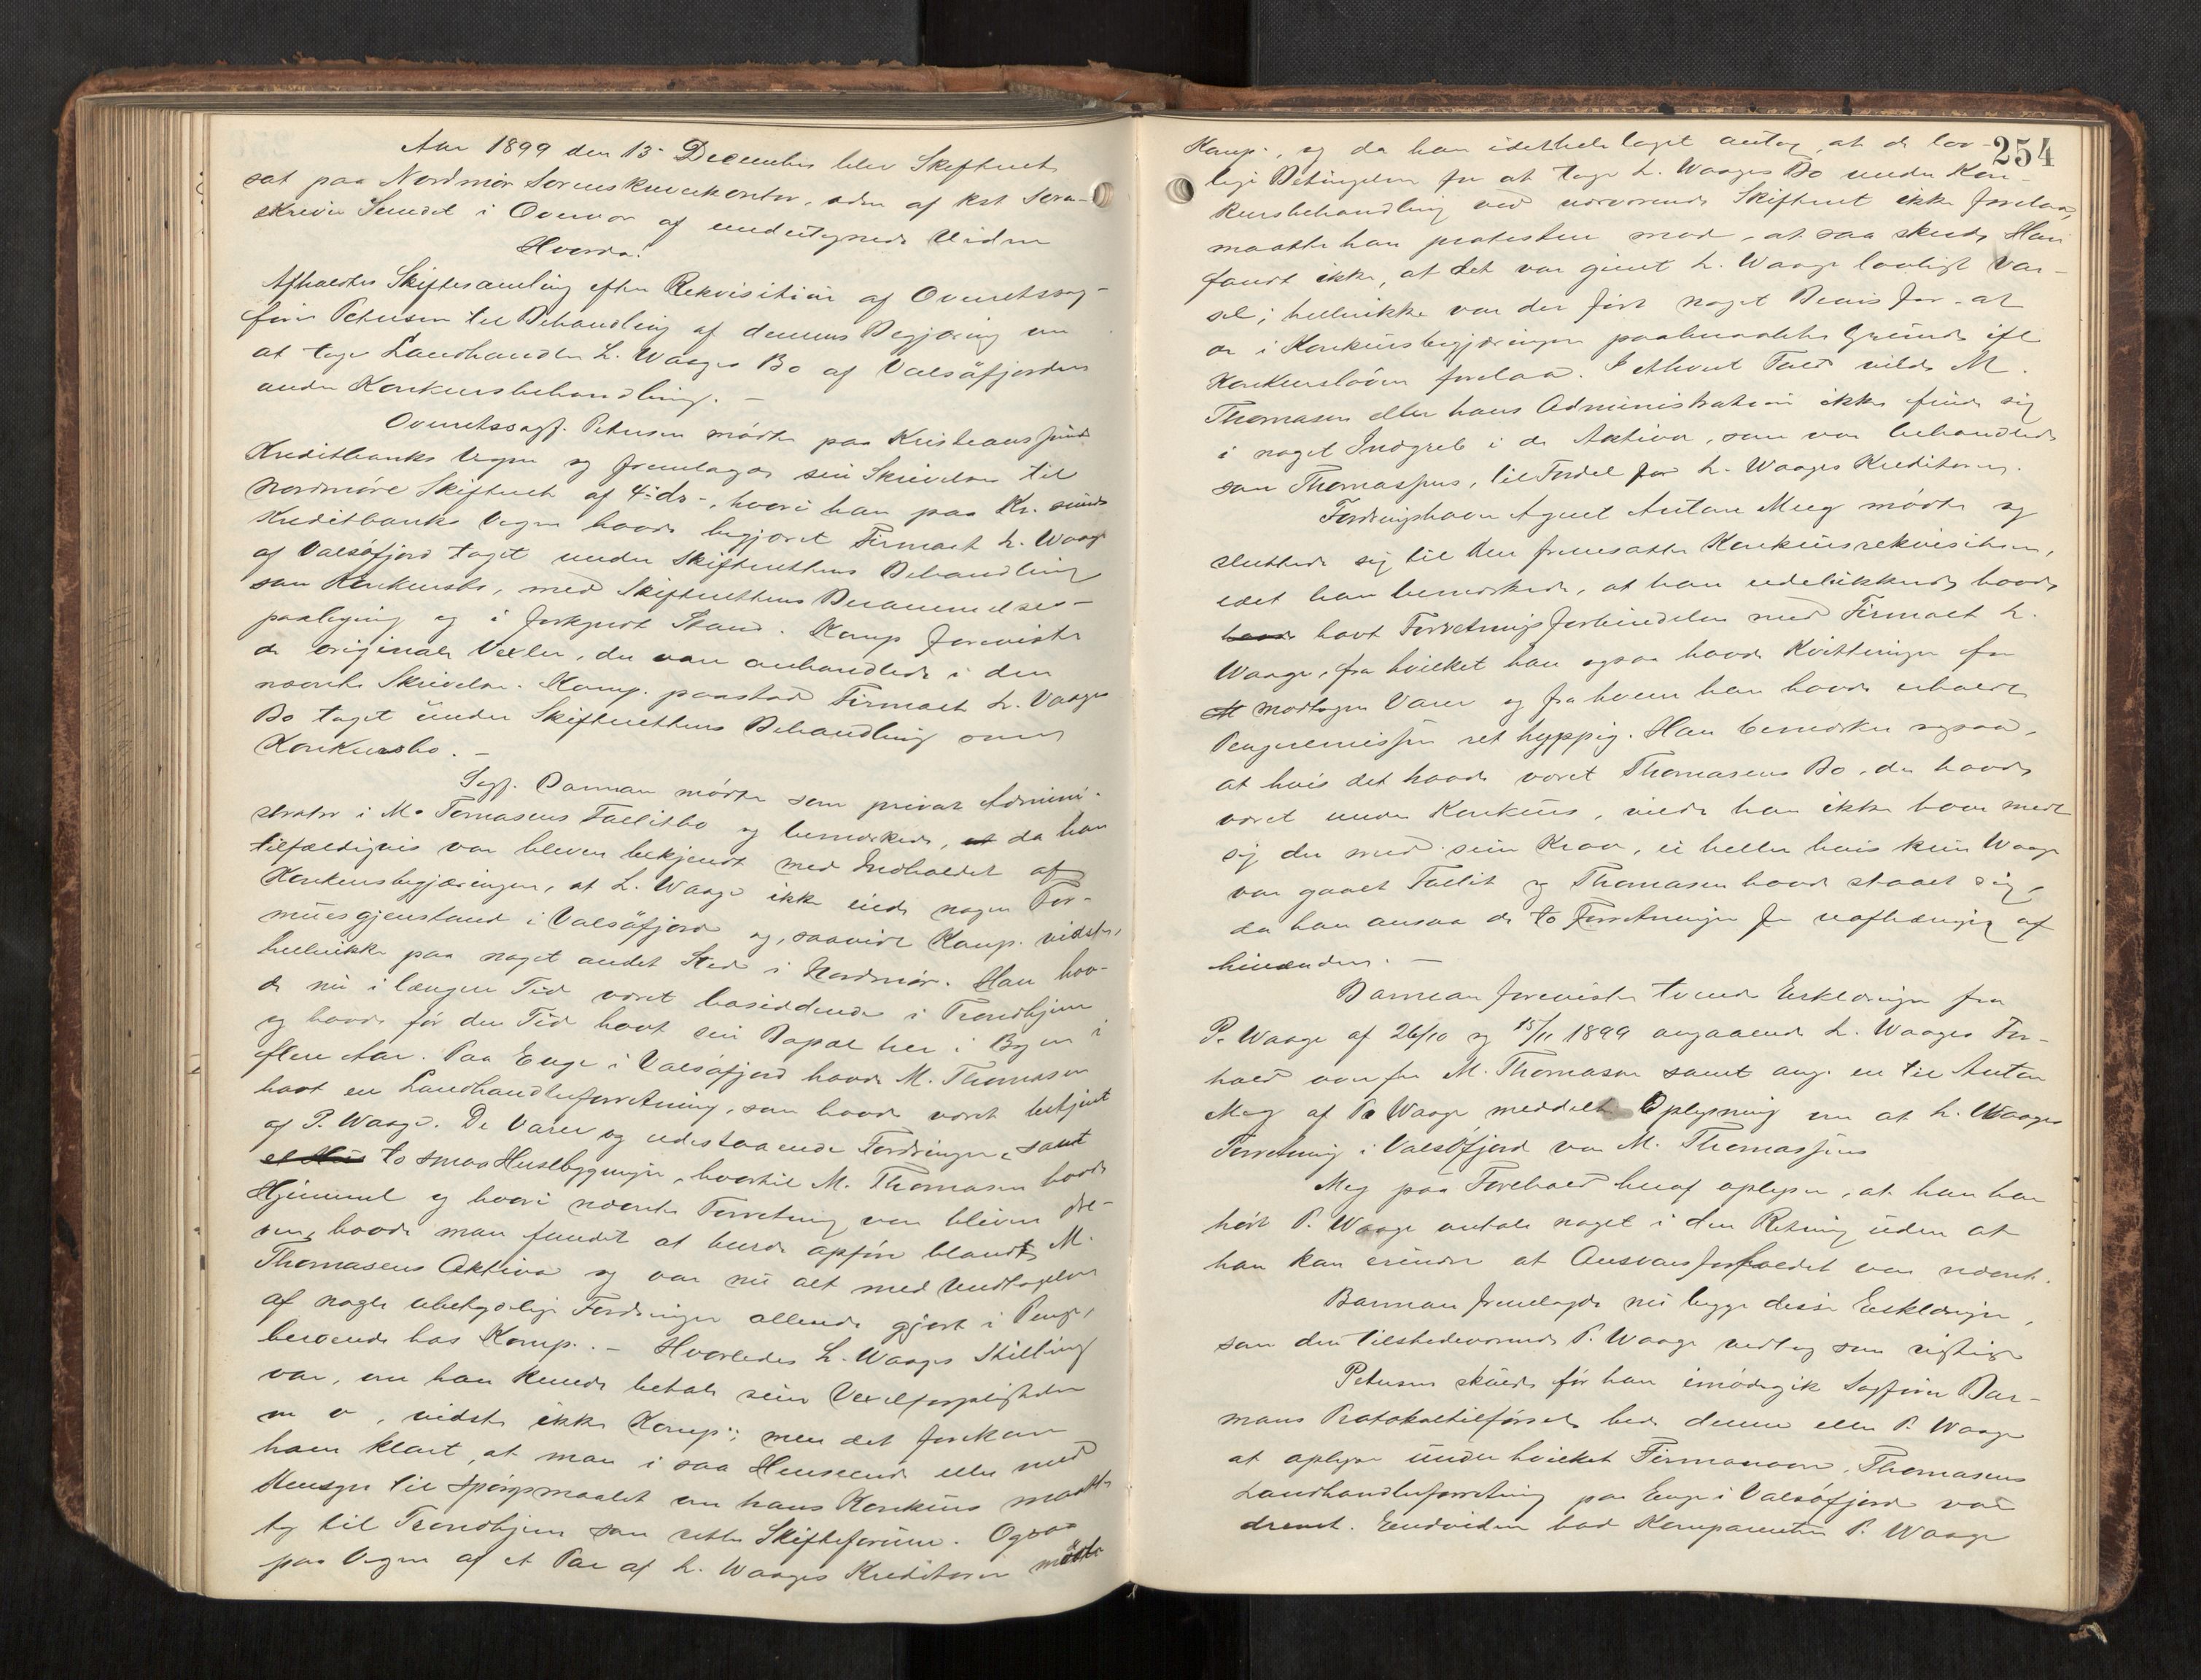 Aar 1899 den 13 December blev Skifteret
sat paa Nordmør Sorenskriverkontor, adm af kst Soren-
skriver Sundet i Overvær af undertegnede Vidner
Hvorda!
Afholdtes Skiftesamling efter Rekvisition af Overretssag-
fører Petersen til Behandling af dennes Begjæring om
at tage Landhandler L. Waages Bo af Valsøfjorden
under Konkursbehandling. —
Overretssagf. Petersen mødte paa Kristiansunds
Kreditbanks Vegne og fremlagde sin Skrivelse til
Nordmøre Skifteret af 4de ds., hvori han paa Kr.sunds
Kreditbanks Vegne havde begjæret Firmaet L. Waage
af Valsøfjord taget under Skifterettens Behandling
som Konkursbo, med Skifterettens Berammelses-
paategning og i forkyndt Stand. Komp foreviste
de originale Vexler, der var omhandlede i den
nævnte Skrivelse. Komp. paastod Firmaet L. Vaages
Bo taget under Skifterettens Behandling som
Konkursbo. —
Sagf. Barman mødte som privat Admini-
strator i M. Tomasens Fallitbo og bemærkede, at da han
tilfældigvis var bleven bekjendt med Indholdet af
Konkursbegjæringen, at L. Waage ikke eiede nogen For-
muesgjenstand i Valsøfjord og, saavidt Komp. vidste,
hellerikke paa noget andet Sted i Nordmør. Han hav-
de nu i længere Tid været bosiddende i Trondhjem
og havde før den Tid havt sin Bopæl her i Byen i
flere Aar. Paa Enge i Valsøfjord havde M. Thomasen
havt en Landhandlerforretning, som havde været bestyret
af P. Waage. De Varer og udestaaende Fordringer, samt
et Hus to smaa Husebygninger, hvortil M. Thomasen havde
Hjemmel og hvori nævnte Forretning var bleven dre-
ven, havde man fundet at burde opføre blandt M.
Thomasens Aktiva og var nu alt med Undtagelse
af nogle ubetydelige Fordringer allerede gjort i Penge,
beroende hos Komp. — Hvorledes L. Waages Stilling
var, om han kunde betale sine Vexelforpligtelser
m v, vidste ikke Komp.; men det forekom
ham klart, at man i saa Henseende eller med
Hensyn til Spørgsmaalet om hans Konkurs maatte
ty til Trondhjem som rette Skifteforum. Ogsaa
paa Vegne af et Par af L. Waages Kreditorer mødte
254
Komp., og da han idethele taget antog, at de lov-
lige Betingelser for at tage L. Waages Bo under Kon-
kursbehandling ved nærværende Skifteret ikke forelaa,
maatte han protestere mod, at saa skede. Han
fandt ikke, at det var givet L. Waage lovligt Var-
sel; hellerikke var der ført noget Bevis for, at
de i Konkursbegjæringen paaberaabte Grunde ifl
Konkursloven forelaa. I ethvert Fald vilde M.
Thomasen eller hans Administration ikke finde sig
i noget Indgreb i de Aktiva, som var behandlede
som Thomassens, til Fordel for L. Waages Kreditorer.
Fordringshaver Agent Anton Meeg mødte og
sluttede sig til den fremsatte Konkursrekvisition,
idet han bemærkede, at han udelukkende havde
havde havt Forretningsforbindelse med Firmaet L.
Waage, fra hvilket han ogsaa havde Kvitteringer for
modtagne Varer og fra hvem han havde erholdt
Pengeremisser ret hyppig. Han bemærker ogsaa,
at hvis det havde været Thomasens Bo, der havde
været under Konkurs, vilde han ikke have meldt
sig der med sin Krav, ei heller hvis kun Waage
var gaaet Fallit og Thomasen havde staaet sig,
da han ansaa de to Forretninger for uafhængig af
hinanden. —
Barman foreviste tvende Erklæringer fra
P. Waage af 26/10 og 15/11 1899 angaaende L. Waages For-
hold overfor M. Thomasen samt ang. en til Anton
Meg af P. Waage meddelt Oplysning om at L. Waages
Forretning i Valsøfjord var M. Thomassens
Meg paa Forehold heraf oplyser, at han har
hørt P. Waage omtale noget i den Retning uden at
han kan erindre at Ansvarsforholdet var nævnt.
Barman fremlagde nu begge disse Erklæringer,
som den tilstedeværende P. Waage vedtog som rigtige
Petersen skulde før han imødegik Sagfører Bar-
mans Protokoltilførsel bede denne eller P. Waage
at oplyse under hvilket Firmanavn, Thomasens
Landhandlerforretning paa Enge i Valsøfjord var
drevet. Endvidere bad Komparenten P. Waage